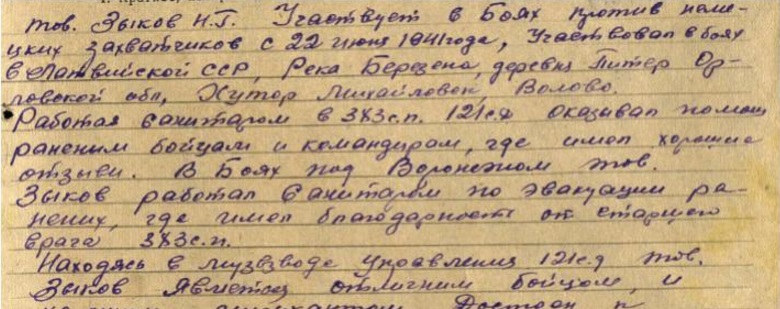 тов. Зыков Н.Г. Участвует в Боях против неме-
цких захватчиков с 22 июня 1941 года, Участвовал в боях
в Латвийской ССР, Река Березена, деревня Питер Ор-
ловской обл, Хутор Михайловок, Волово.
Работая санитаром в 383с.п. 121с.д оказывал помощ
раненим бойцам и командирам, где имел хорошие
отзыви. В Боях под Воронежом тов.
Зыков работал санитаром по эвакуации ра-
нених, где имел благодарность от старшего
врача 383с.п.
Находясь в музвзводе управления 121с.д тов.
Зыков является отличним бойцом, и
музыкантом. Достоен к